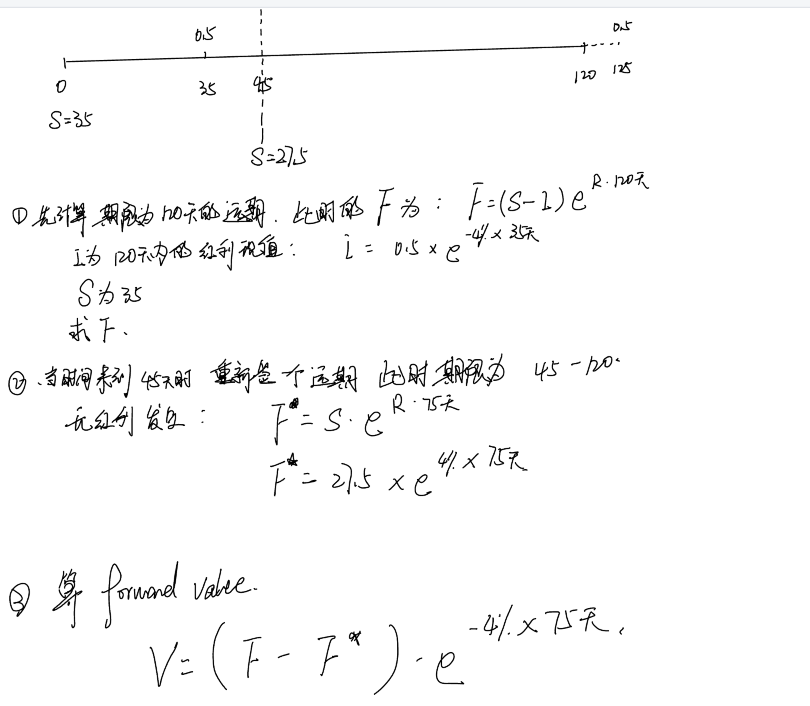 0.5 0.5
0 35 45 120 125
S=35
S=27.5
① 先计算 期限为120天的远期. 此时的 F 为: F=(S-I)e^{R·120天}
I为 120天内的红利现值: I = 0.5 × e^{-4% × 35天}
S 为 35
求 F.
② 当时间来到 45天时 重新签个远期 此时期限为 45-120.
无红利发生: F* = S·e^{R·75天}
F* = 27.5 × e^{4% × 75天}
③ 算 forward value.
V = (F - F*)·e^{-4% × 75天}.